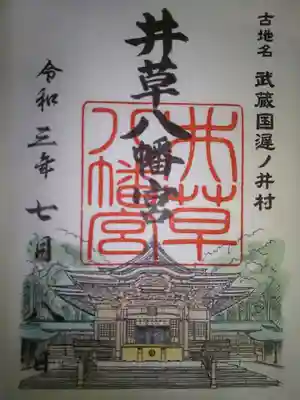 古地名 武蔵国遅ノ井村
井草八幡宮
井草八幡宮
令和三年七月